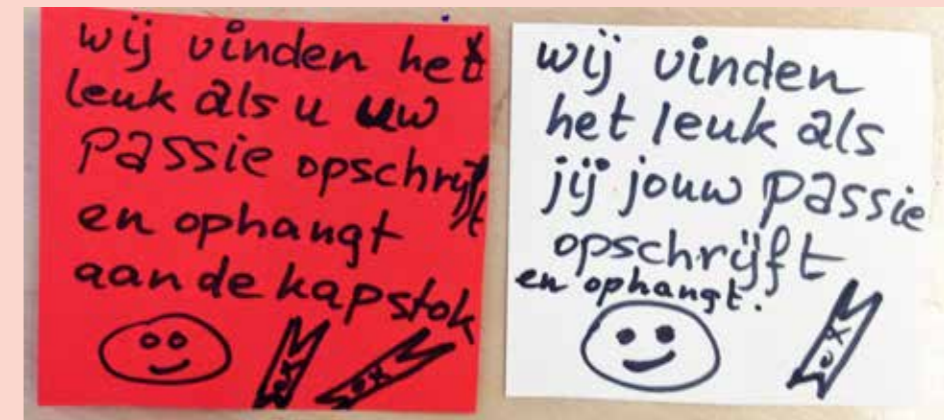 wij vinden het
leuk als u uw
passie opschrijft
en ophangt
aan de kapstok
wij vinden
het leuk als
jij jouw passie
opschrijft
en ophangt.